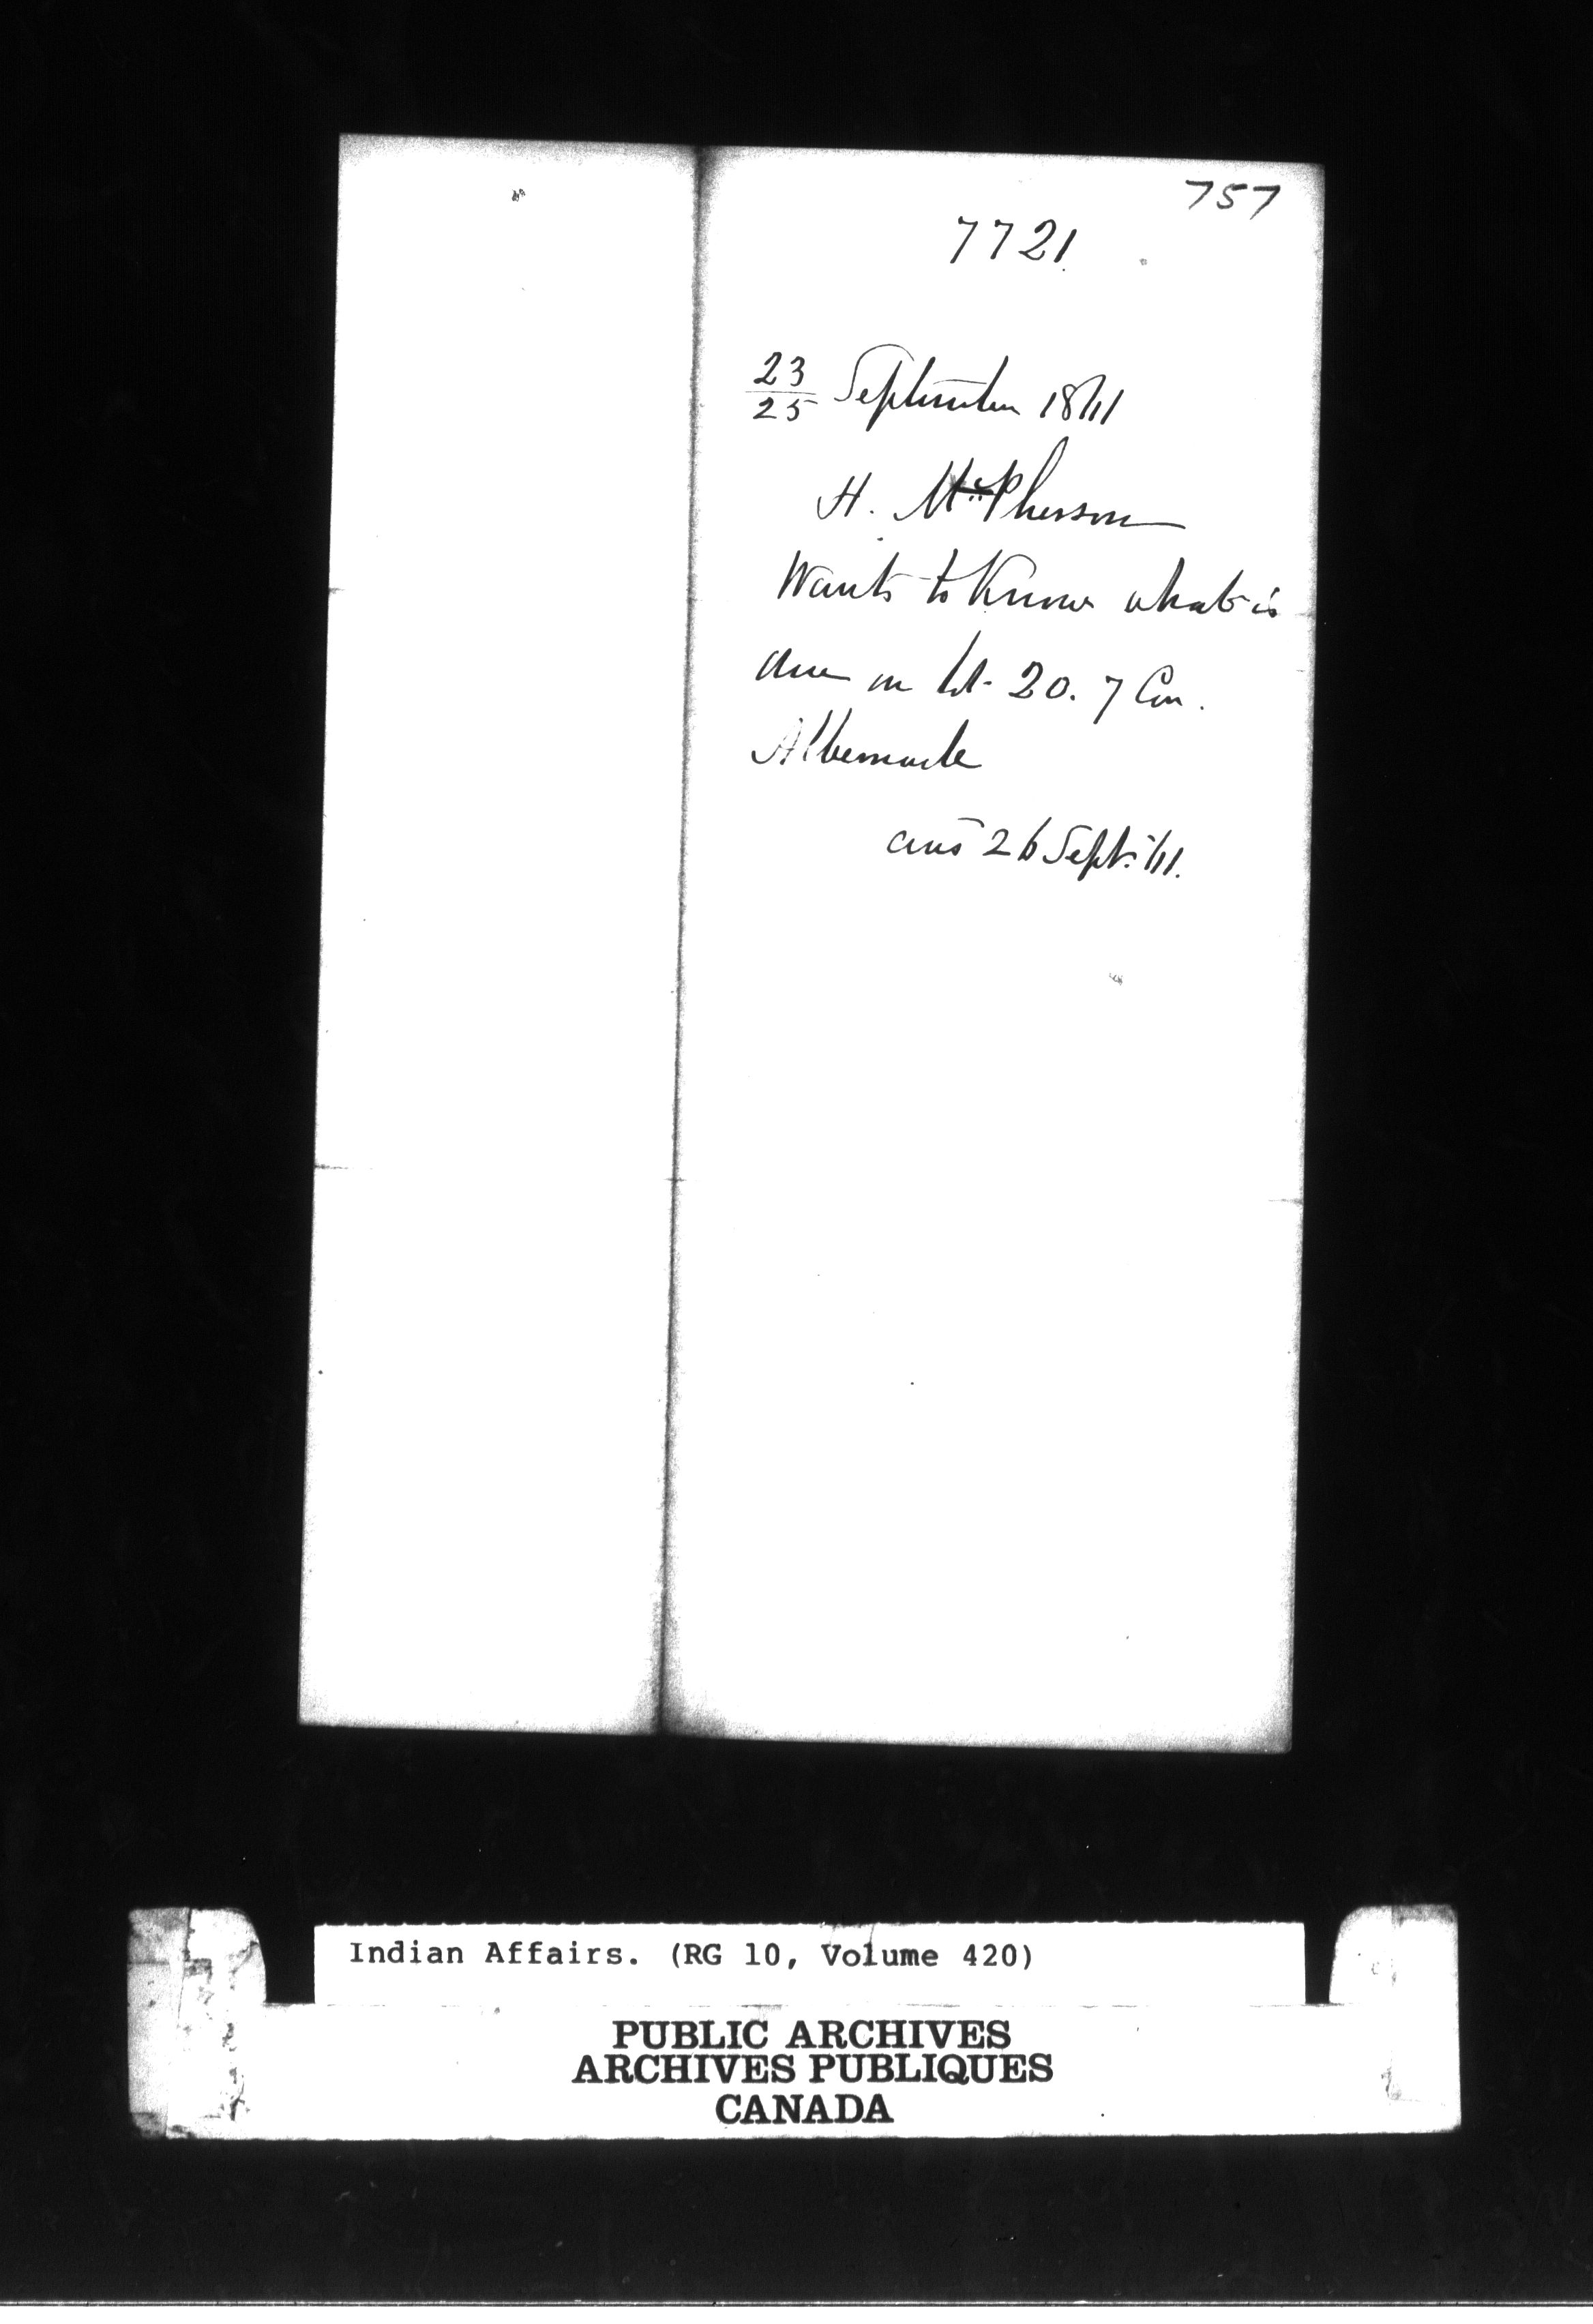 757
7721
23/25 September 1871
H. McPherson
Wants to Know what is
due on lot 20. 7 Con.
Albemarle
ans 26 Sept. '71.
Indian Affairs. (RG 10, Volume 420)
PUBLIC ARCHIVES
ARCHIVES PUBLIQUES
CANADA